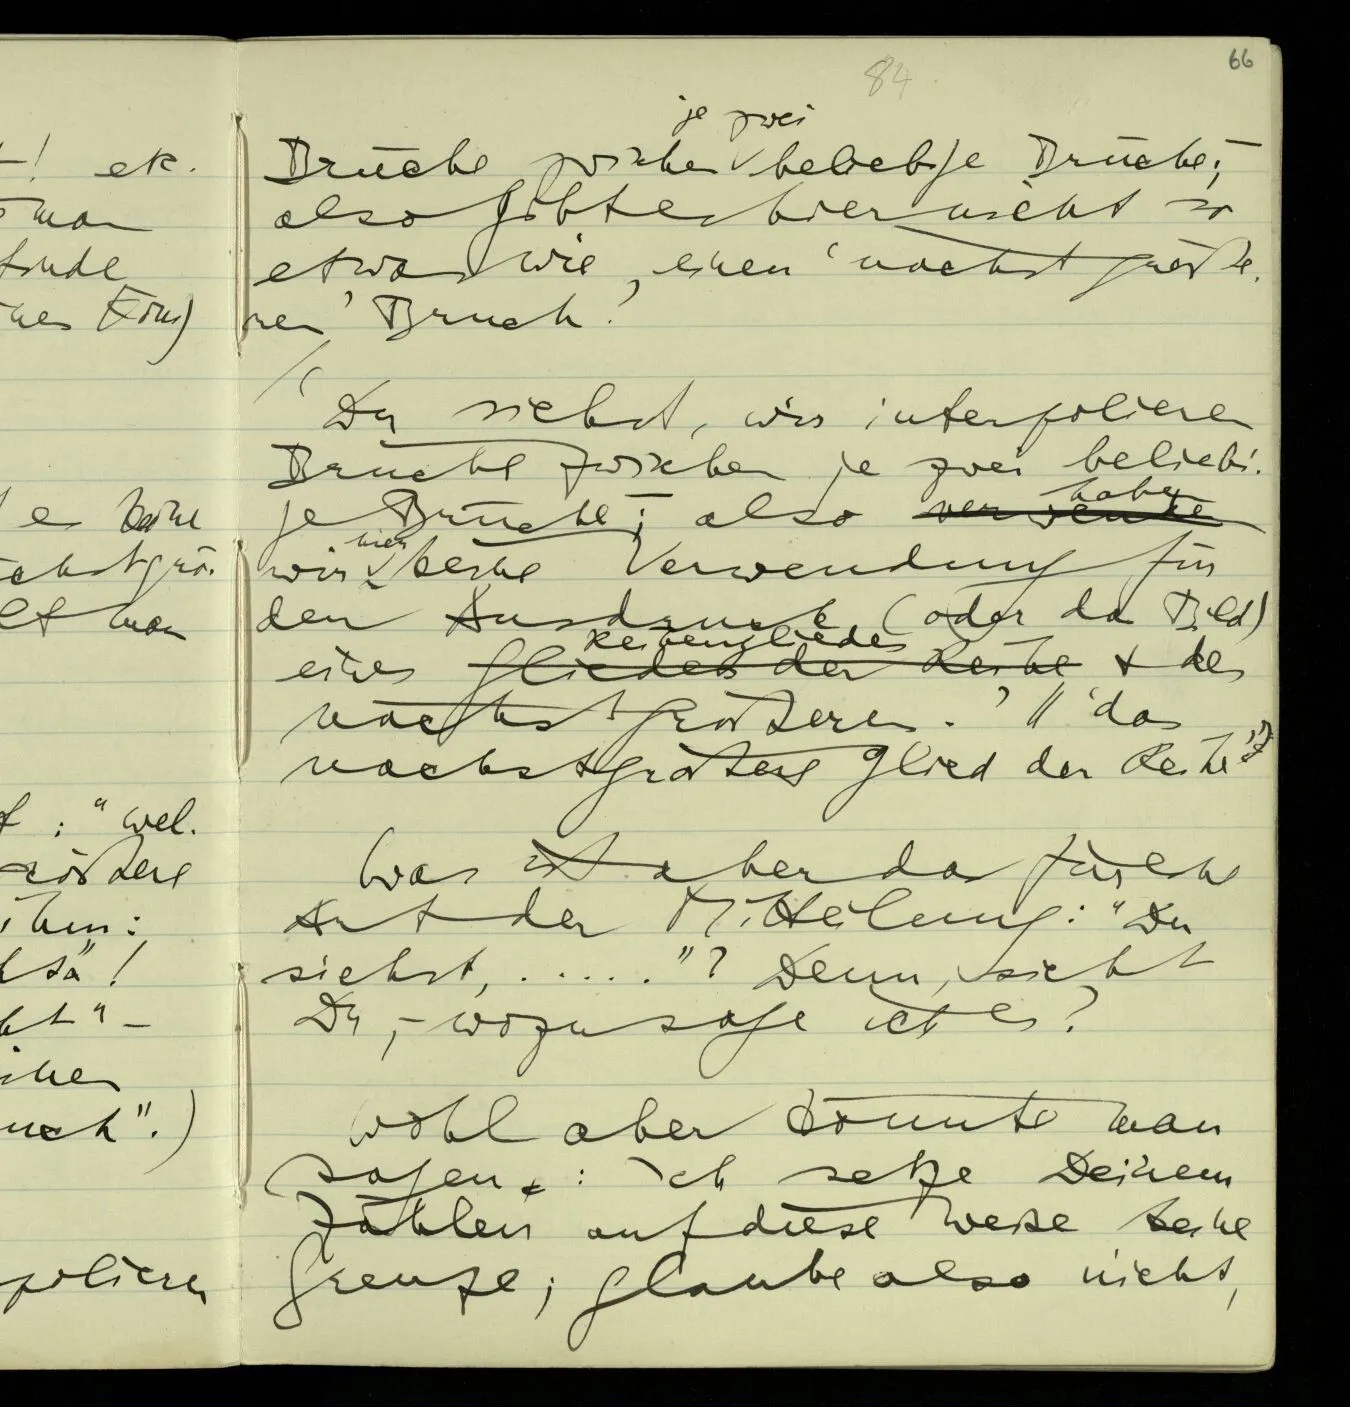 66
84.
je zwei
Brüche zwischen beliebige Brüche;
also gibt es hier nicht so
etwas wie ‚einen ‘nächst größe-
ren’ Bruch’.
‘Du siehst, wir interpolieren
Brüche zwischen je zwei beliebi-
haben
ge Brüche; also verwende
hier
wir keine Verwendung für
den Ausdruck (oder das Bild)
Reihengliedes
eines Gliedes der Reihe & des
nächst größeren.’ // ‘das
nächstgrößere Glied der Reihe’”
Was ist aber das für eine
Art der Mitteilung: “Du
siehst, . . . . .”? Denn, sieht
Du, – wozu sage ich es?
Wohl aber könnte man
sagen: ich setze Deinem
Zählen auf diese Weise keine
Grenze; glaube also nicht,
! etc.
man
finde
es keine
man
: “wel-
größere
ihm:
!
uch”.)
polieren